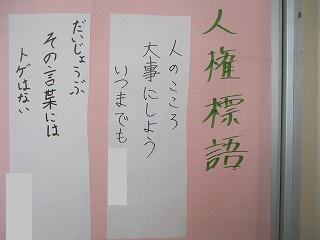 人権標語
人のこころ
大事にしよう
いつまでも
だいじょうぶ
その言葉には
トゲはない